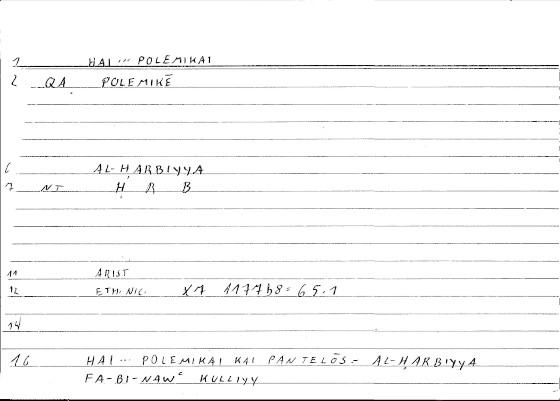 1 HAI ... POLEMIKAI
2 QA POLEMIKĒ
6 AL-ḤARBIYYA
7 NT Ḥ R B
11 ARIST
12 ETH. NIC. X7 1177b8 = 65.1
14
16 HAI ... POLEMIKAI KAI PANTELŌS = AL-ḤARBIYYA
FA-BI-NAWᶜ KULLIYY